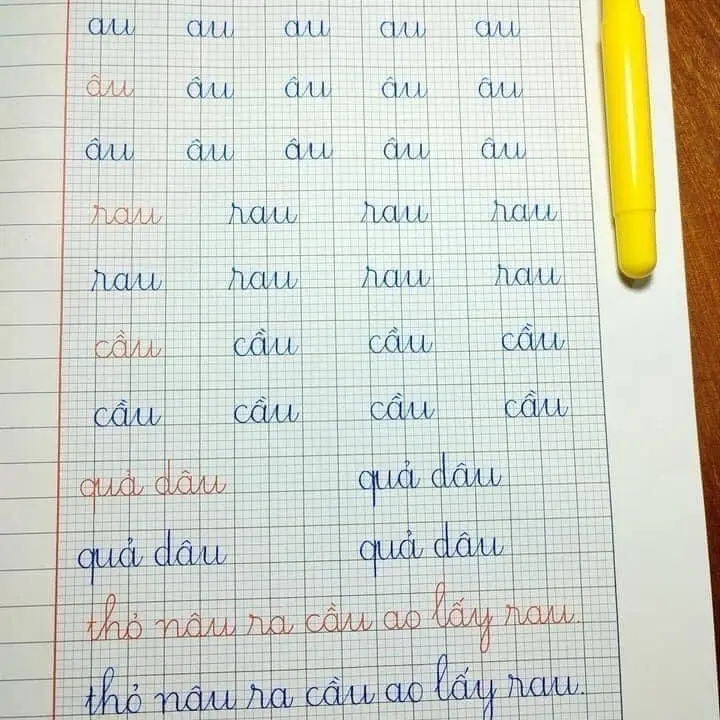 au au au au au
âu âu âu âu âu
âu âu âu âu âu
rau rau rau rau
rau rau rau rau
cầu cầu cầu cầu
cầu cầu cầu cầu
quả dâu quả dâu
quả dâu quả dâu
thỏ nâu ra cầu ao lấy rau.
thỏ nâu ra cầu ao lấy rau.